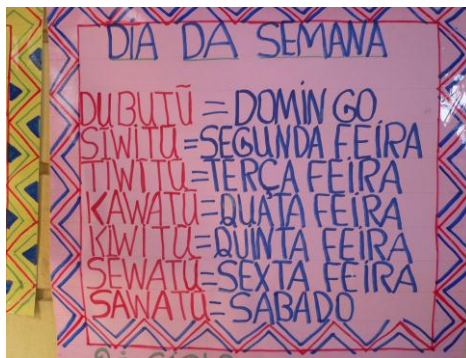 DIA DA SEMANA
DUBUTŨ = DOMINGO
SĨWITŨ = SEGUNDA FEIRA
TIWITŨ = TERÇA FEIRA
KAWATŨ = QUATA FEIRA
KIWITŨ = QUINTA FEIRA
SEWATŨ = SEXTA FEIRA
SAWATŨ = SÁBADO